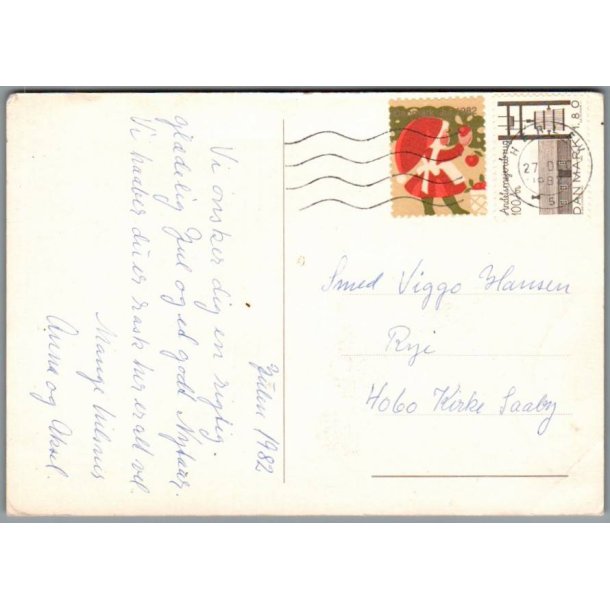 Julen 1982
Vi ønsker dig en rigtig
glædelig Jul og et godt Nytaar.
Vi haaber du er rask her er alt vel.
Mange hilsner
Anna og Aksel.
1982
DANMARK 1.80
Andelsmejeribrug
100 år
27.
Smed Viggo Hansen
Rye
4060 Kirke Saaby